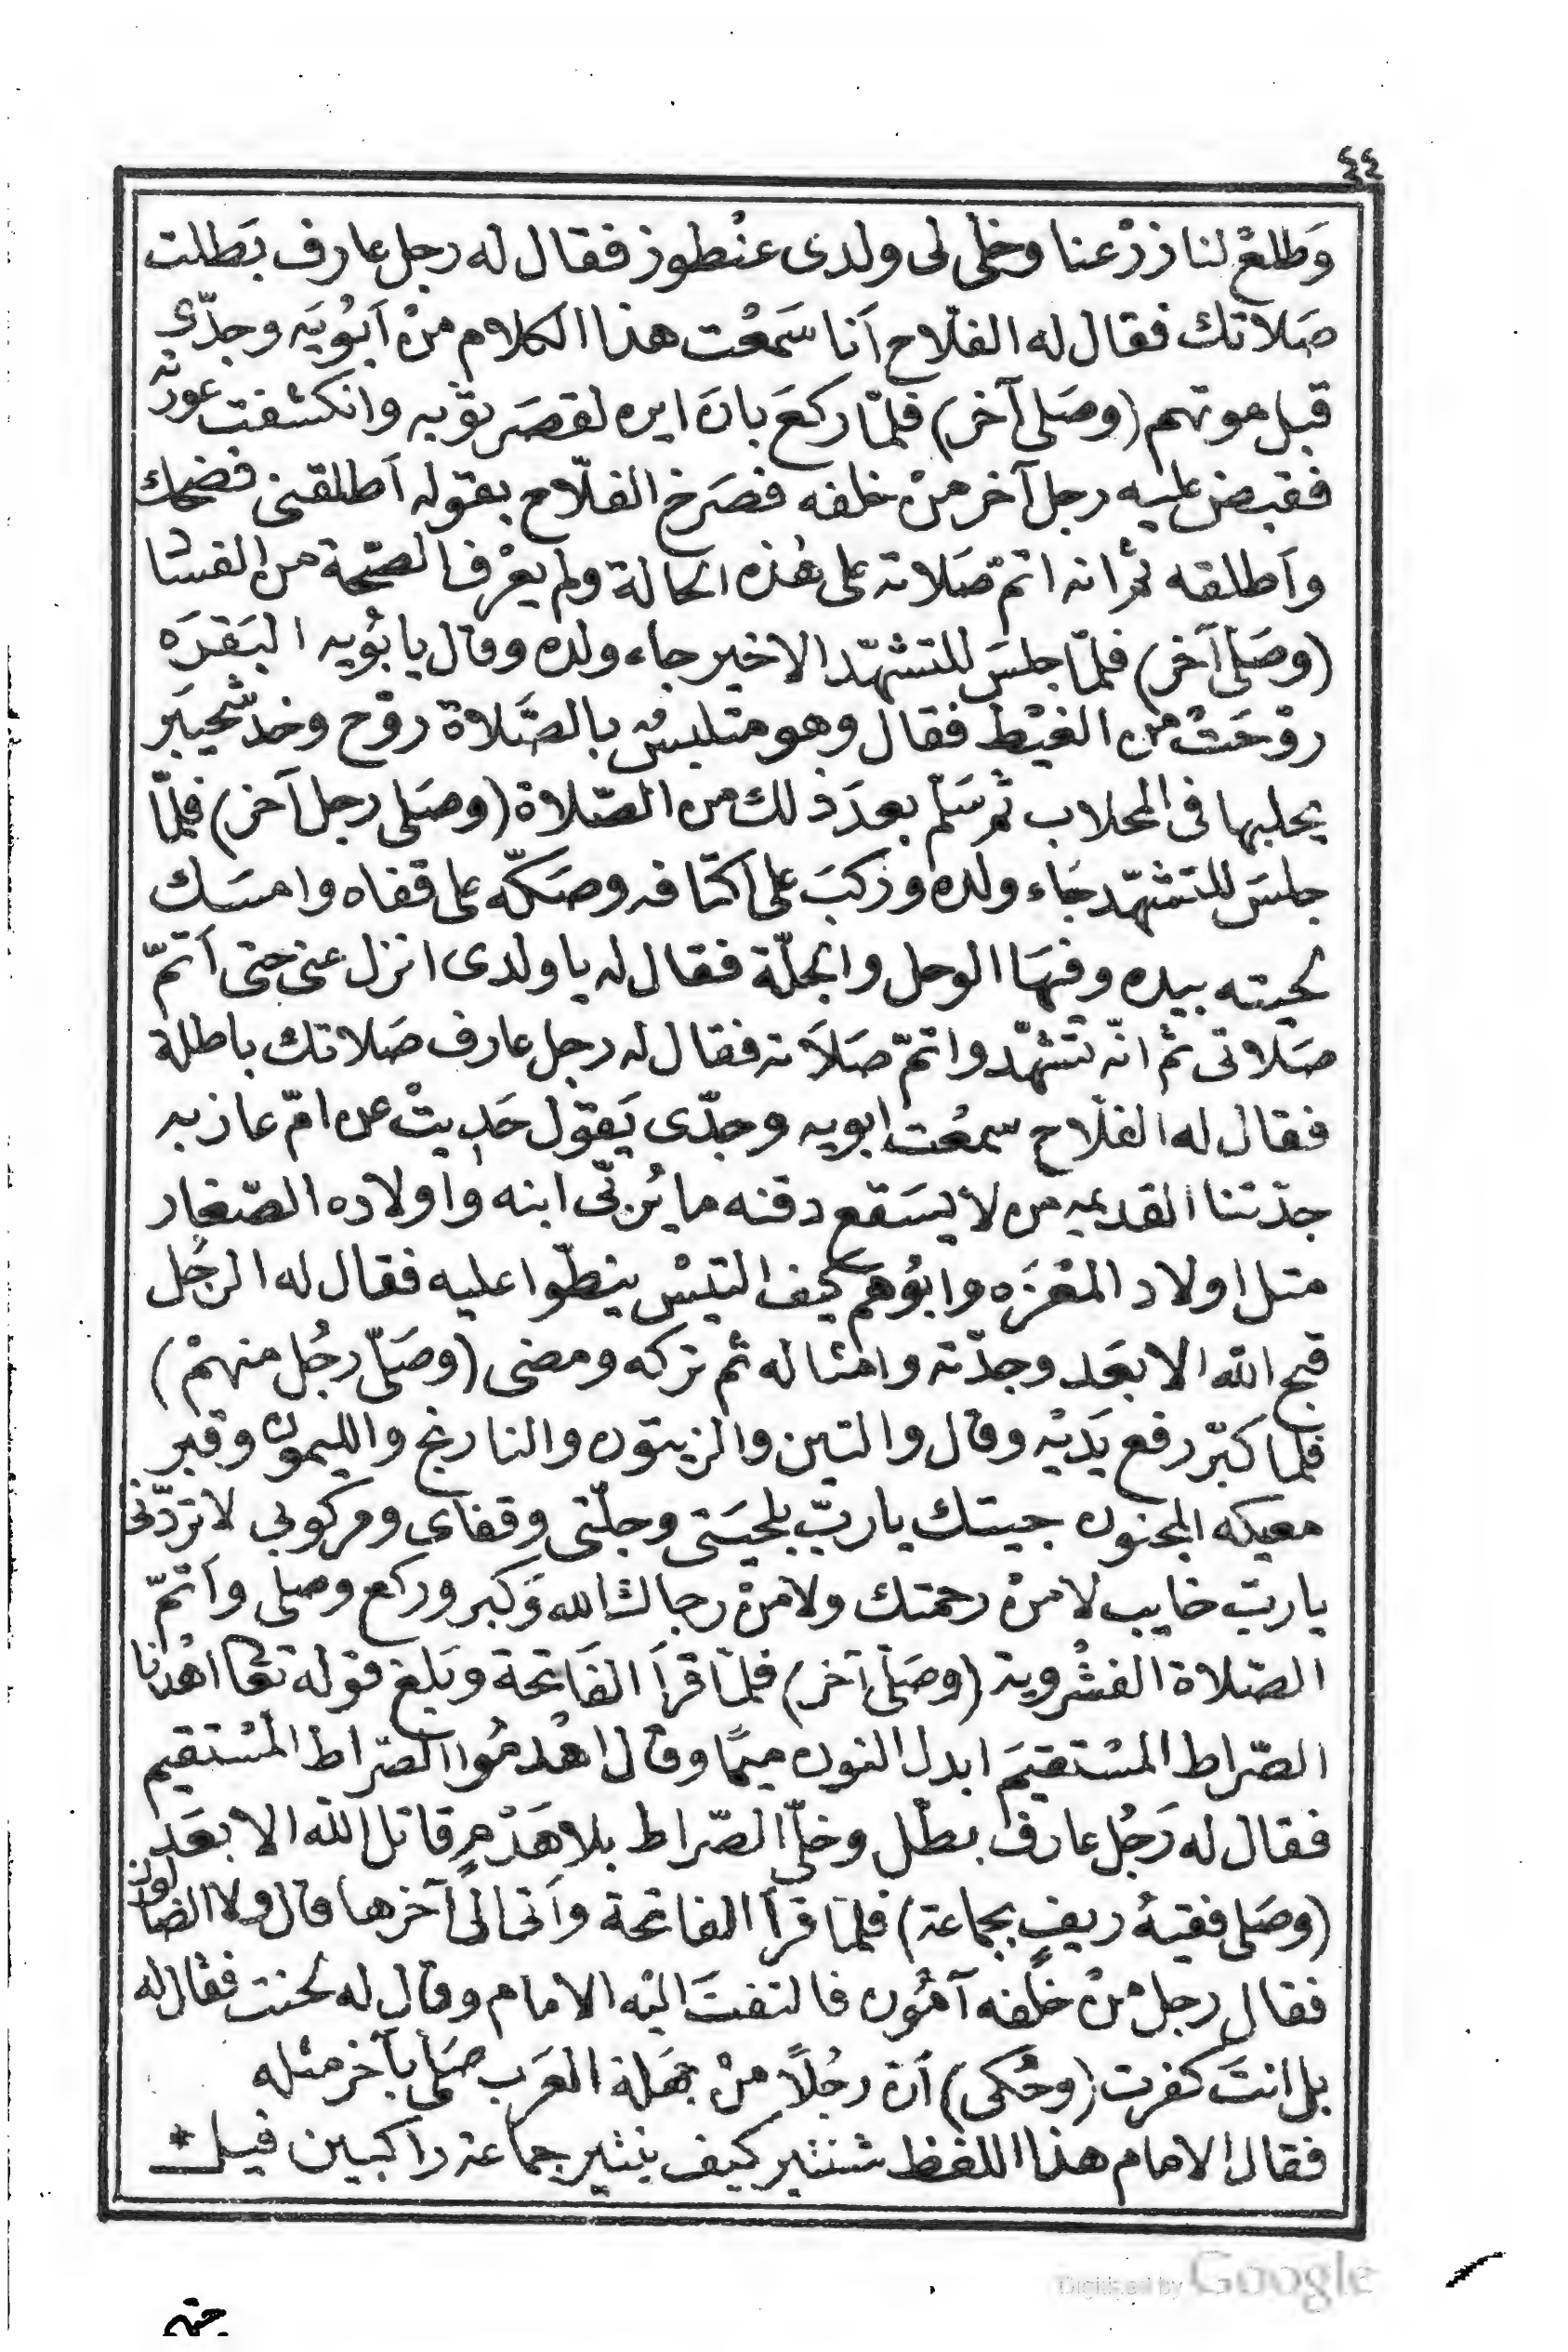 ٤٤
وَطلعْ لنا زرْعنا وخلّى لى ولدى عنْطوز فقال له رجل عارف بَطلت
صَلاتك فقال له الفلّاح اَنا سَمعْت هذا الكلام منْ اَبُويَه وجدّى
قبل موتهم (وصَلى آخر) فلمّا ركعَ بانَ ايره لقصَر ثوْبه وانكشفت عورته
فقبض عليه رجل آخر منْ خلفه فصَرخ الفلّاح بقوله اَطلقنى فضحك
واَطلقه ثمّ انه اتمّ صَلاته على هٰذه الحالة ولم يعْرف الصّحة من الفشا
(وصَلى آخر) فلمّا جلسَ للتشهّد الاخير جاء ولده وقال يا بُويه البَقرَه
روّحَتْ من الغيْط فقال وهو متلبسٌ بالصَّلاة روّح وخدْ شحيبَر
يحلبها فى المحلاب ثمّ سَلّم بعدَ ذلك من الصّلاة (وصَلى رجل آخر) فلمّا
جلسَ للتشهّد جَاء ولده وركبَ على اكتافه وصَكّه على قفاه وامسَك
لحيته بيده وفيهَا الوحل والجلّة فقال له يا ولدى انزل عنى حتى اَتمّ
صَلاتى ثمّ انّه تشهّد واتمّ صَلاَته فقال له رجل عارف صَلاتك باطلة
فقال له الفلّاح سمعْت ابويه وجدّى يَقوْل حَديثْ عن امّ عازبه
جدّتنا القديمه من لا يسَقع دقنه ما يُربّى ابنه واولاده الصّغار
متل اولاد المعْزَه وابُوهم كيف التيْس ينطّوا عليه فقال له الرجُل
قبح الله الابعَد وجدّته وامثاله ثم تركه ومضى (وصَلّى رجُل منهمْ)
فلما كبّر رفع يَديْه وقال والتين والزيتون والنارنج والليمون وقبر
معيكه المجنون جيتك يا ربّ بلحيَتى وجلّتى وقفاى ومركوبى لا تردّنى
يا ربّ خايب لا منْ رحمتك ولا منْ رجالك الله وَكبر وركع وصلى واَتمّ
الصّلاة الفشْروية (وصَلّى آخر) فلمّا قرأَ الفَاتحة وبَلغ قوله تعا اهْدنا
الصّراط المسْتقيمَ ابدل النون ميمًا وقال اهْدمُوا الصّراط المسْتقيم
فقال له رَجُل عارف بطّل وخلّى الصّراط بلا هَدْمٍ قاتل الله الابعَد
(وصَلى فقيهُ ريفٍ بجماعة) فلمّا قرأ الفاتحة واَتى الى آخرها قال ولا الضالون
فقال رجل منْ خلفه آمنُون فالتفتَ اليْه الامام وقال له لحنت فقال له
بل انتَ كفرت (وحُكى) اَنّ رجُلاً منْ جهَلة العرَب صَلى بآخر مثله
فقال الامام هذا اللفظ شنتير كيف ينتير جماعة راكبين فيل *
حتى
Digitized by Google